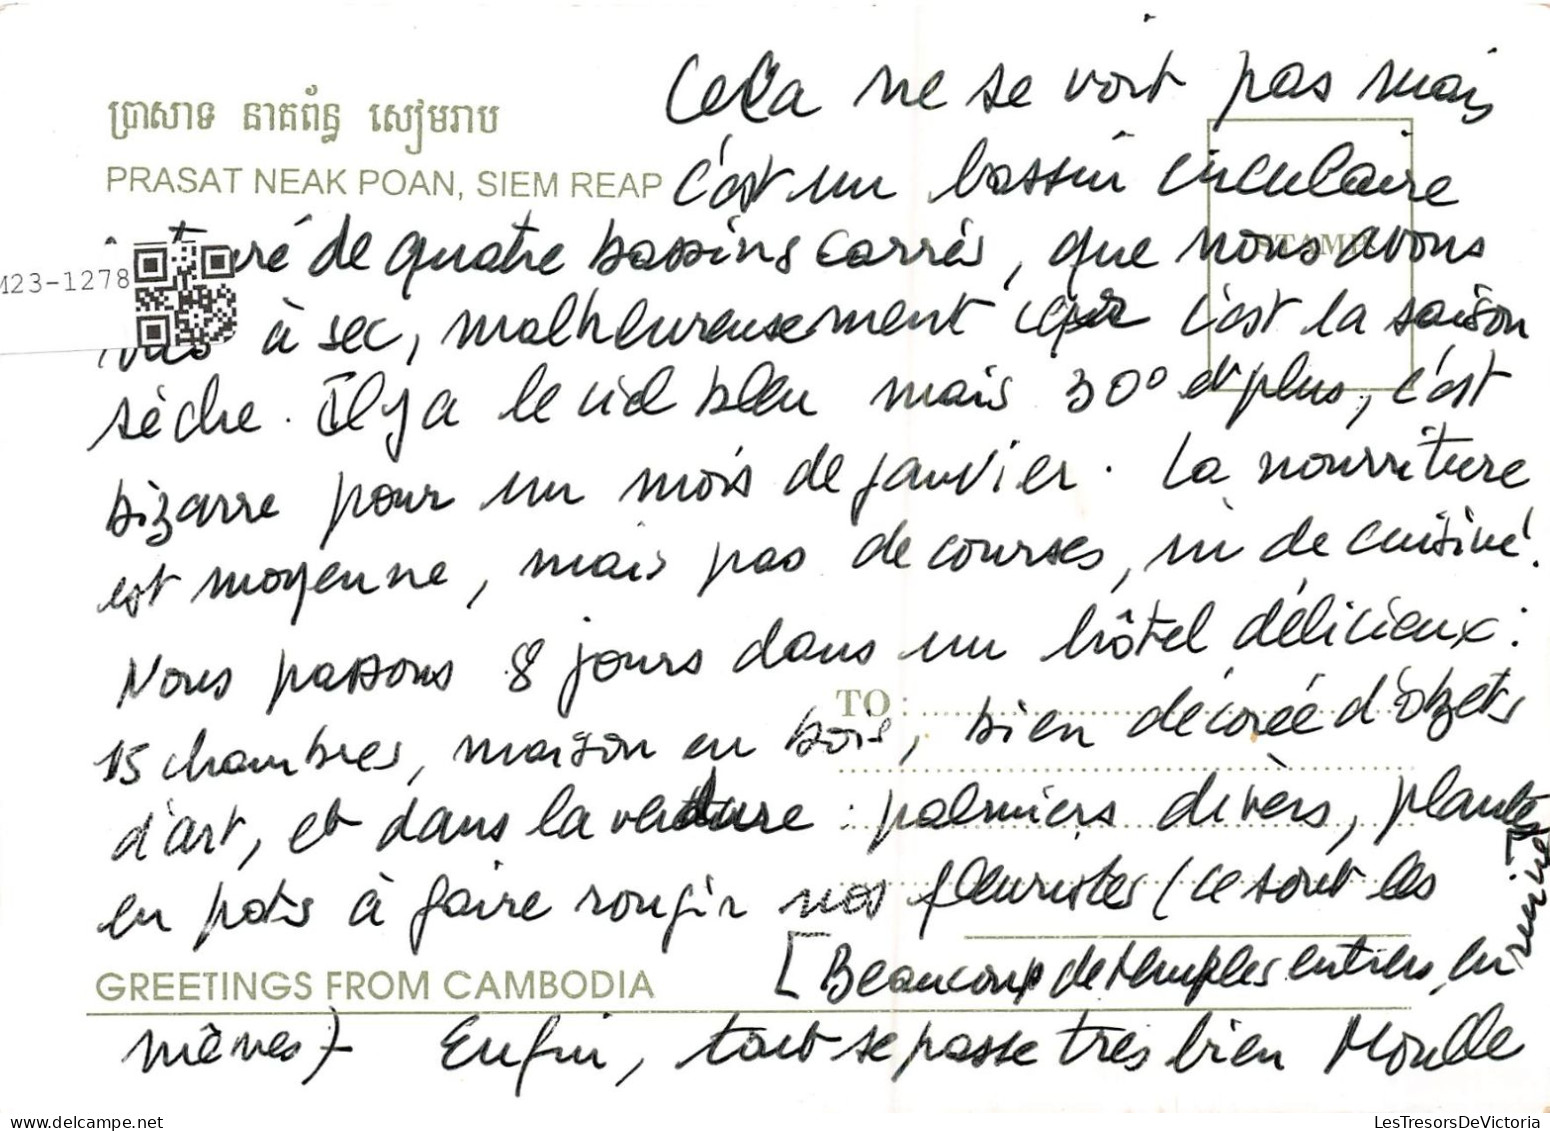 Cela ne se voit pas mais
ប្រាសាទ នាគព័ន្ធ សៀមរាប
PRASAT NEAK POAN, SIEM REAP
c'est un bassin circulaire
STAMP
de quatre bassins carrés, que nous avons
M23-1278
à sec, malheureusement car c'est la saison
sèche. Il y a le ciel bleu mais 30° et plus, c'est
bizarre pour un mois de janvier. La nourriture
est moyenne, mais pas de courses, ni de cuisine!
Nous passons 8 jours dans un hôtel délicieux :
TO :
15 chambres, maison en bois, bien décorée d'objets
d'art, et dans la verdure : palmiers divers, plantes
en pots à faire rougir nos fleuristes (ce sont les
[Beaucoup de temples entiers, en ruine]
GREETINGS FROM CAMBODIA
mêmes) Enfin, tout se passe très bien
LesTresorsDeVictoria
delcampe.net